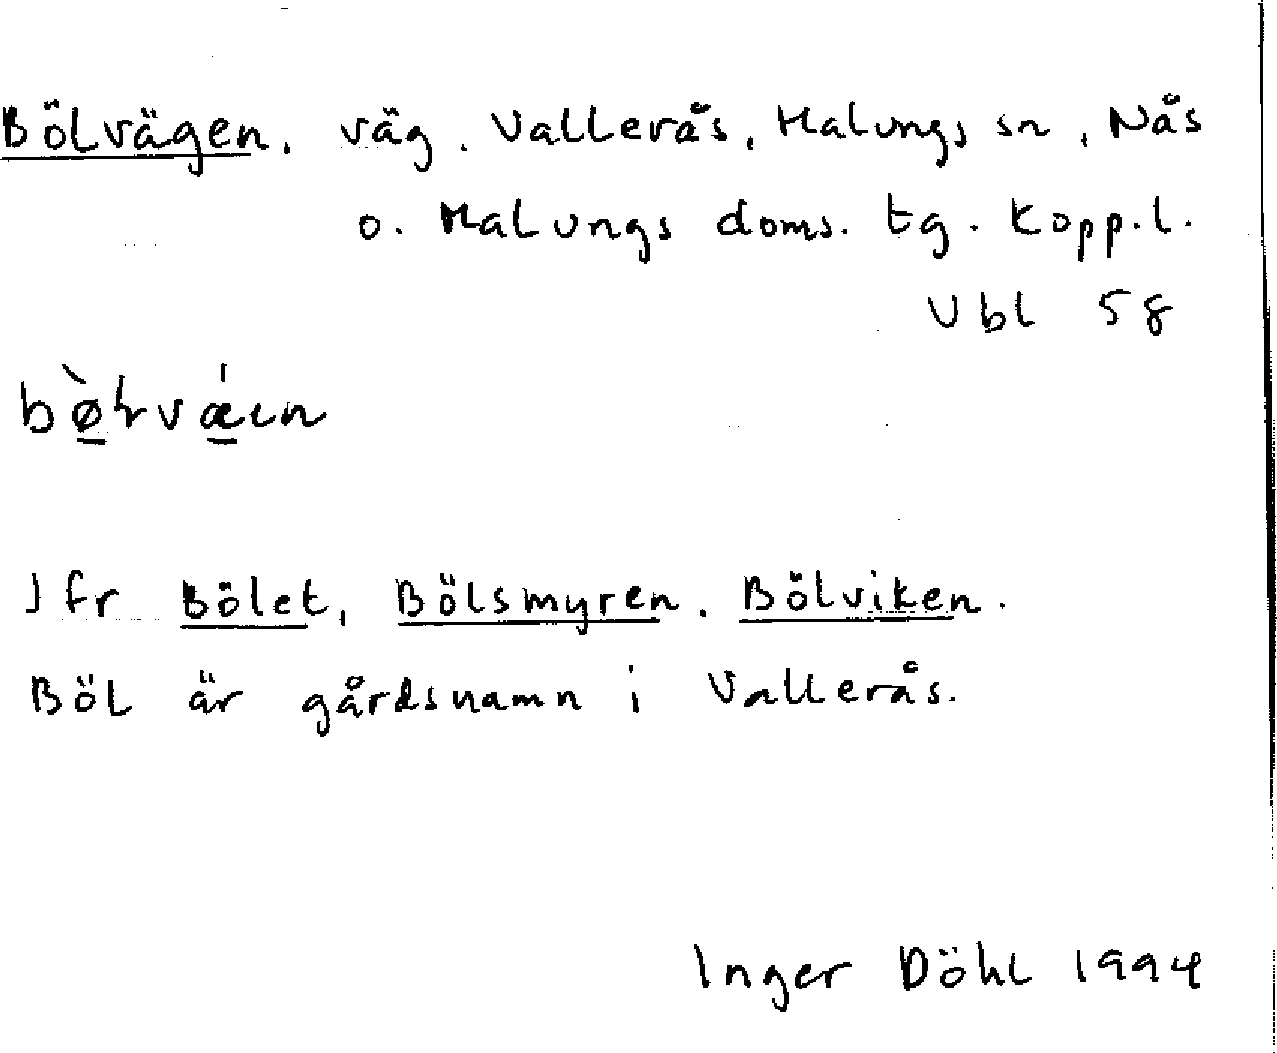 Bölvägen, väg, Vallerås, Malungs sn, Nås
o. Malungs doms. tg. Kopp.l.
Ubl 58
Jfr Bölet, Bölsmyren, Bölviken.
Böl är gårdsnamn i Vallerås.
Inger Döhl 1994